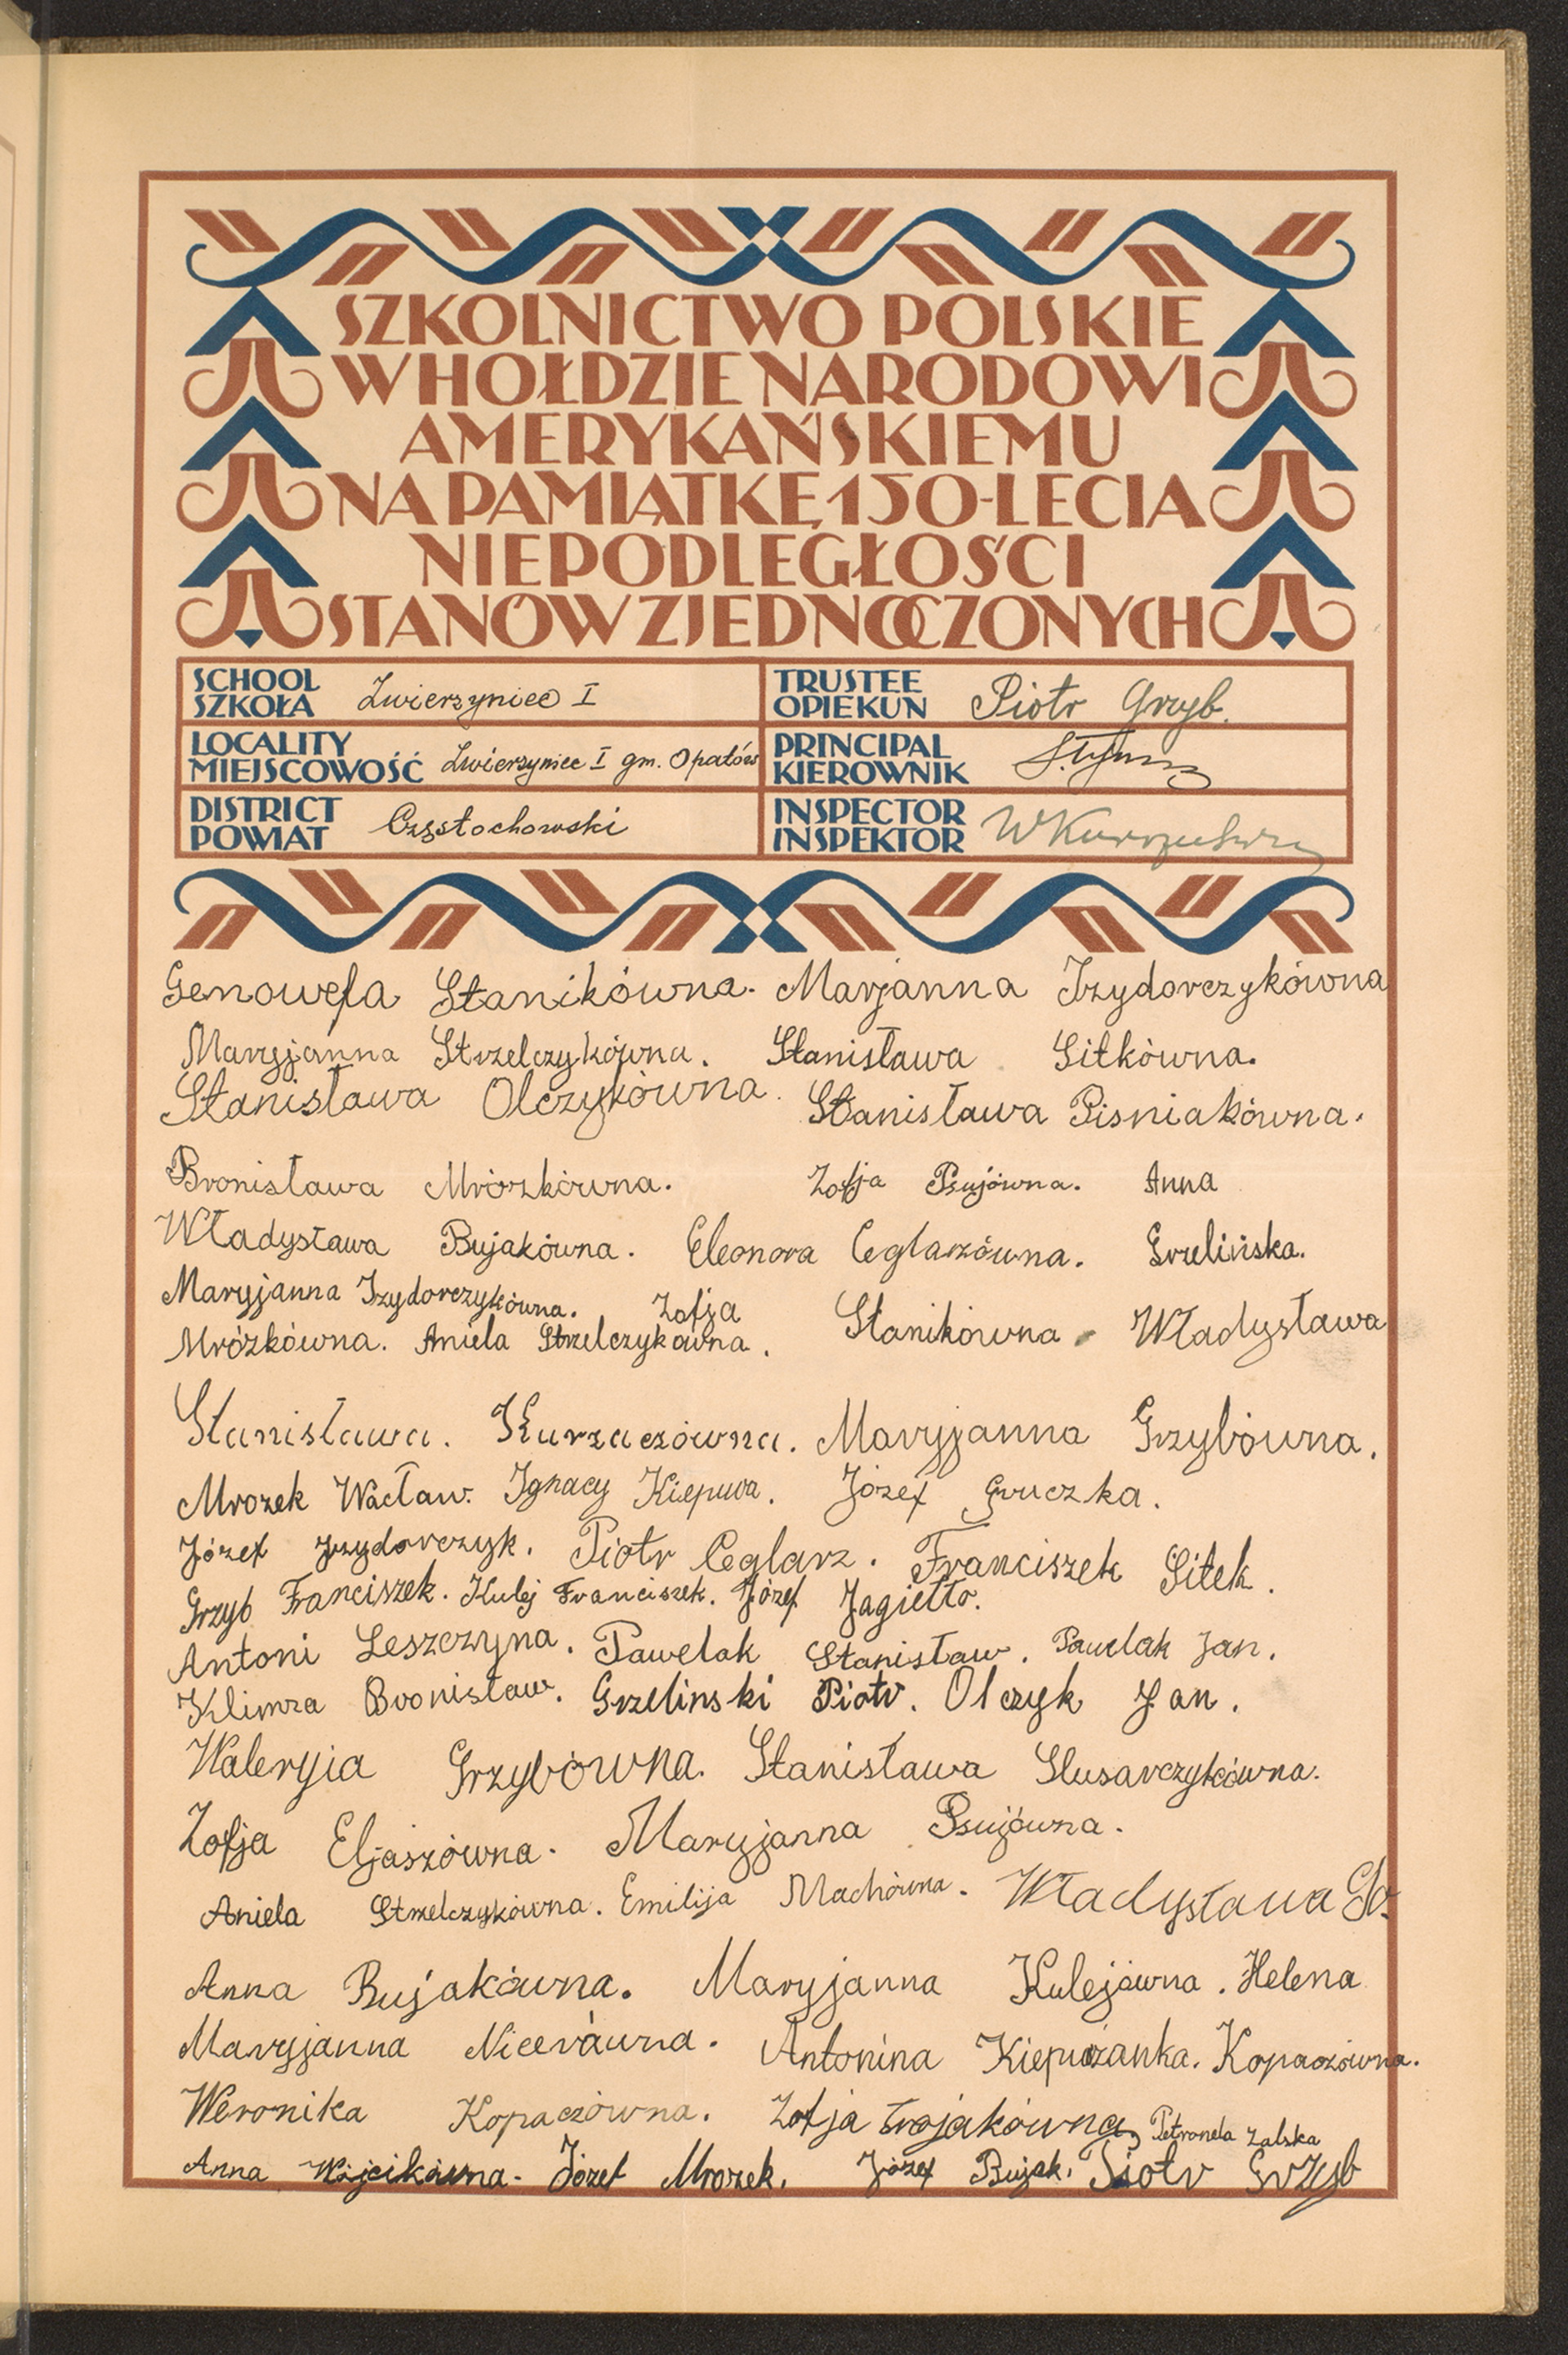 SZKOLNICTWO POLSKIE
W HOŁDZIE NARODOWI
AMERYKAŃSKIEMU
NA PAMIĄTKĘ 150-LECIA
NIEPODLEGŁOŚCI
STANÓW ZJEDNOCZONYCH
SCHOOL
SZKOŁA Zwierzyniec I
TRUSTEE
OPIEKUN Piotr Grzyb.
LOCALITY
MIEJSCOWOŚĆ Zwierzyniec I gm. Opatów
PRINCIPAL
KIEROWNIK
DISTRICT
POWIAT Częstochowski
INSPECTOR
INSPEKTOR
Genowefa Stanikówna. Marjanna Izydorczykówna
Maryjanna Strzelczykówna. Stanisława Sitkówna.
Stanisława Olczykówna. Stanisława Pisniakówna.
Bronisława Mrózkówna. Zofja Psujówna. Anna
Władysława Bujakówna. Eleonora Ceglarzówna. Grzelińska.
Maryjanna Izydorczykówna. Zofja Stanikówna. Władysława
Mrózkówna. Aniela Strzelczykówna.
Stanisława. Kurzaczówna. Maryjanna Grzybówna.
Mrozek Wacław. Ignacy Kiepura. Józef Gruczka.
Józef Izydorczyk. Piotr Ceglarz. Franciszek Sitek.
Grzyb Franciszek. Kulej Franciszek. Józef Jagiełło.
Antoni Leszczyna. Pawelak Stanisław. Pawelak Jan.
Klimza Bronisław. Grzelinski Piotr. Olczyk Jan.
Waleryja Grzybówna. Stanisława Slusarczykówna.
Zofja Eljaszówna. Maryjanna Psujówna.
Aniela Strzelczykówna. Emilija Machówna. Władysława
Anna Bujakówna. Maryjanna Kulejówna. Helena
Maryjanna Nicerówna. Antonina Kiepurzanka. Kopaczówna.
Weronika Kopaczówna. Zofja Trojakówna, Petronela Zalska
Anna Wójcikówna. Józef Mrozek. Józef Bujak. Piotr Grzyb